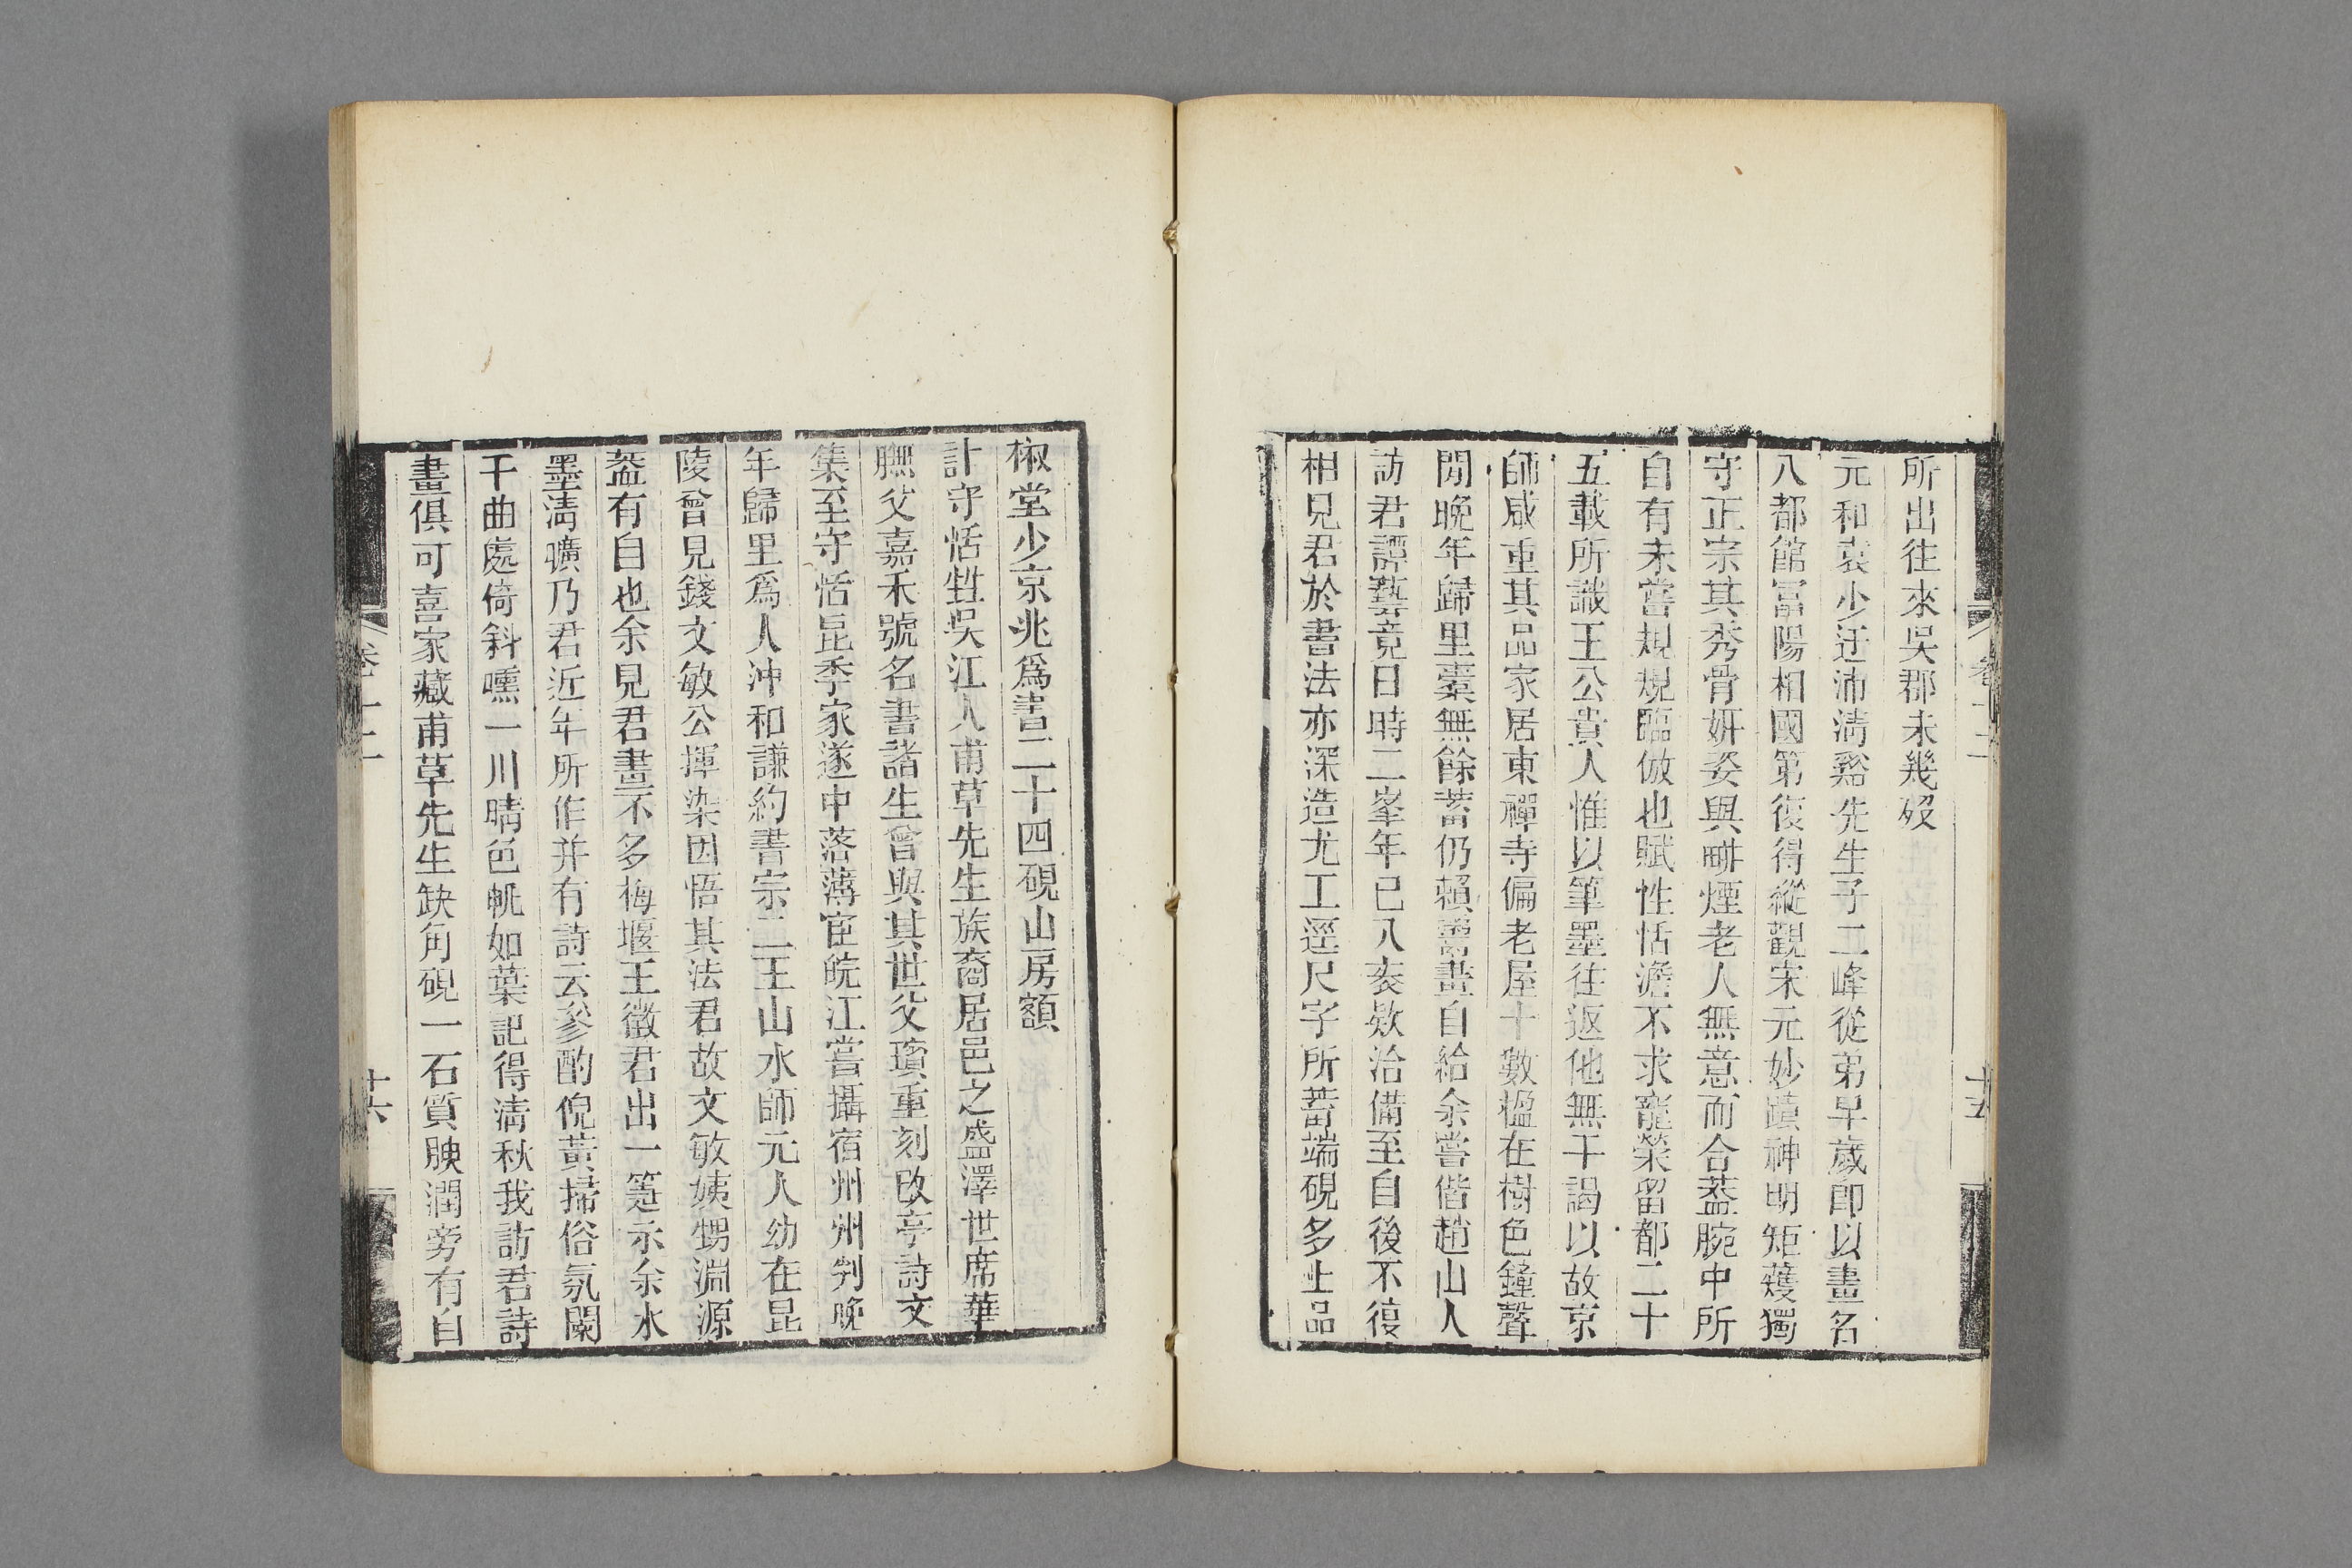 所出往來吳郡未幾歿
元和袁少迂沛淸谿先生子二峰從弟早歲卽以畫名
八都館富陽相國第復得縱觀宋元妙蹟神明矩蒦獨
守正宗其秀骨妍姿與畊煙老人無意而合葢腕中所
自有未嘗規規臨倣也賦性恬澹不求寵榮留都二十
五載所識王公貴人惟以筆墨往返他無干謁以故京
師咸重其品家居東禪寺偏老屋十數楹在樹色鐘聲
閒晚年歸里橐無餘蓄仍賴鬻畫自給余嘗偕趙山人
訪君譚藝竟日時二峯年已八袠欵洽備至自後不復
相見君於書法亦深造尤工逕尺字所蓄端硯多上品
椒堂少京兆爲書二十四硯山房額
計守恬甡吳江人甫草先生族裔居邑之盛澤世席華
膴父嘉禾號名書諸生曾與其世父瓆重刻改亭詩文
集至守恬昆季家遂中落薄宦皖江嘗攝宿州州判晚
年歸里爲人沖和謙約書宗二王山水師元人幼在昆
陵曾見錢文敏公揮染因悟其法君故文敏姨甥淵源
葢有自也余見君畫不多梅堰王徵君出一箑示余水
墨淸曠乃君近年所作并有詩云參酌倪黃掃俗氛闌
干曲處倚斜曛一川晴色帆如葉記得淸秋我訪君詩
畫俱可喜家藏甫草先生缺角硯一石質腴潤旁有自
卷十二
十五
卷十二
十六